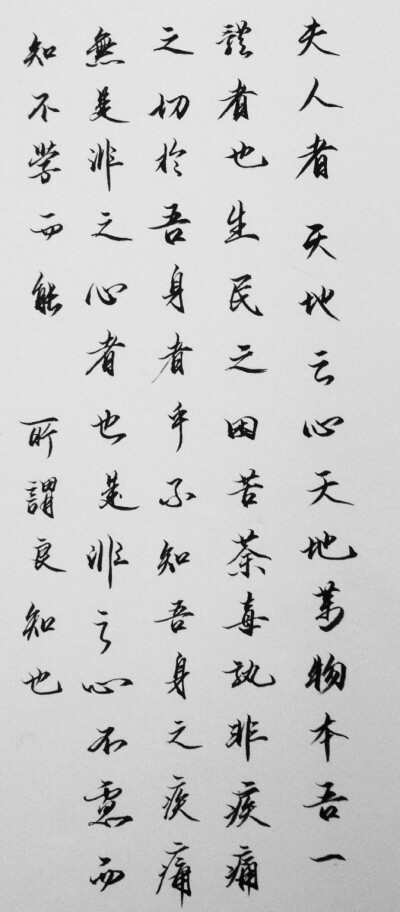 夫人者天地之心天地萬物本吾一
體者也生民之困苦荼毒孰非疾痛
之切於吾身者乎不知吾身之疾痛
無是非之心者也是非之心不慮而
知不學而能 所謂良知也